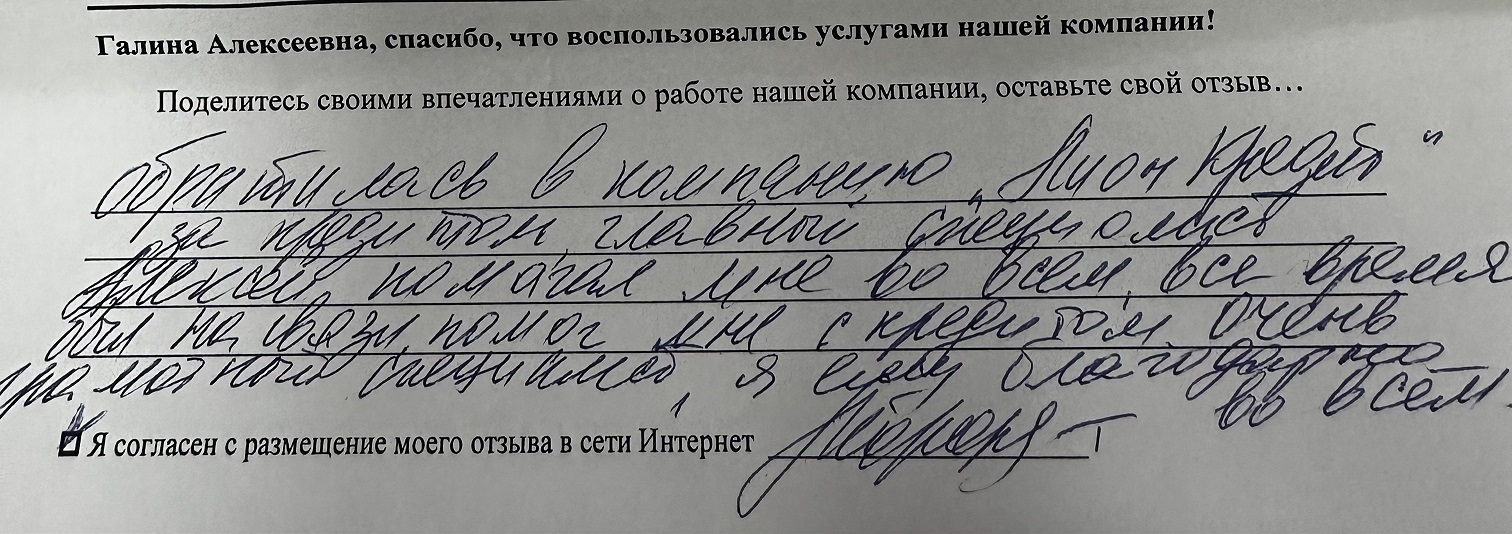 Галина Алексеевна, спасибо, что воспользовались услугами нашей компании!
Поделитесь своими впечатлениями о работе нашей компании, оставьте свой отзыв...
Обратилась в компанию „Лион Кредит"
за кредитом, главный специалист
Алексей, помагал мне во всем, все время
был на связи, помог мне с кредитом, очень
грамотный специалист, я ему благодарна
во всем.
Я согласен с размещение моего отзыва в сети Интернет